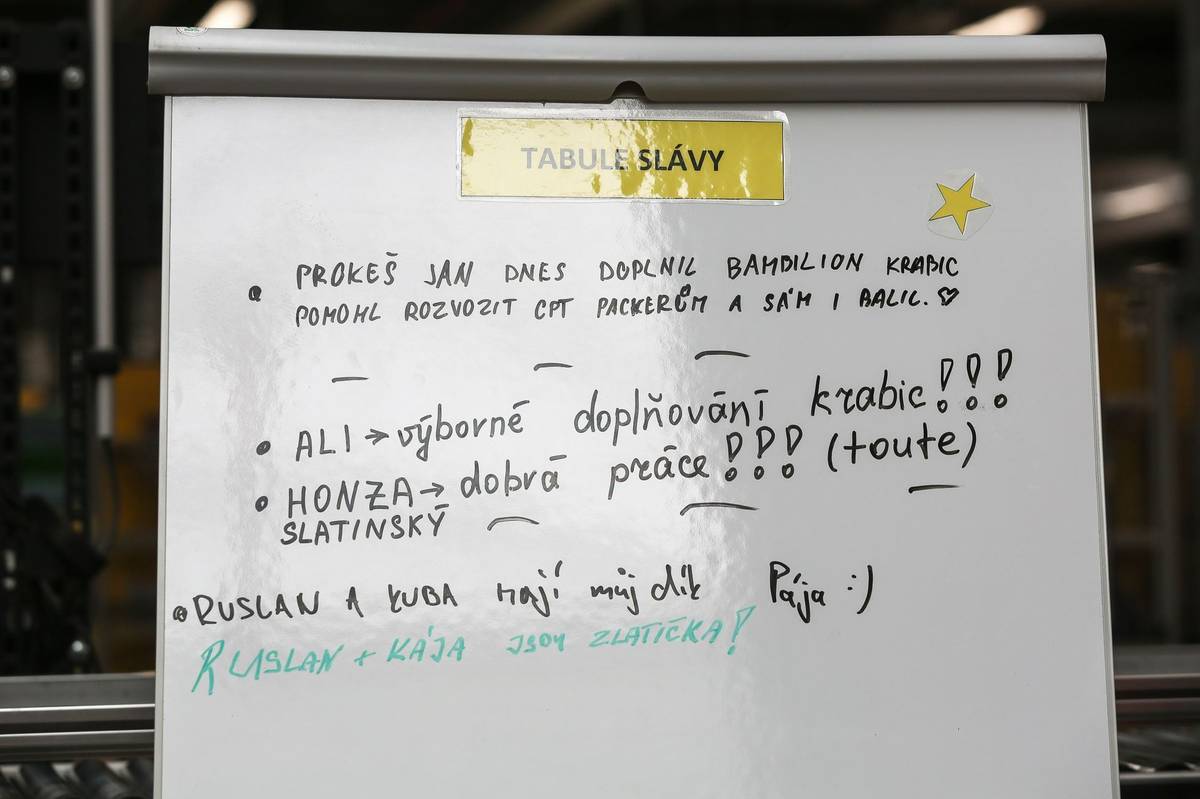 TABULE SLÁVY
• PROKEŠ JAN DNES DOPLNIL BAMBILION KRABIC
POMOHL ROZVOZIT CPT PACKERŮM A SÁM I BALIL. ♡
• ALI → výborné doplňování krabic!!!
• HONZA → dobrá práce!!! (toute)
SLATINSKÝ
• RUSLAN A KUBA mají můj dík Pája :)
RUSLAN + KÁJA JSOU ZLATÍČKA!